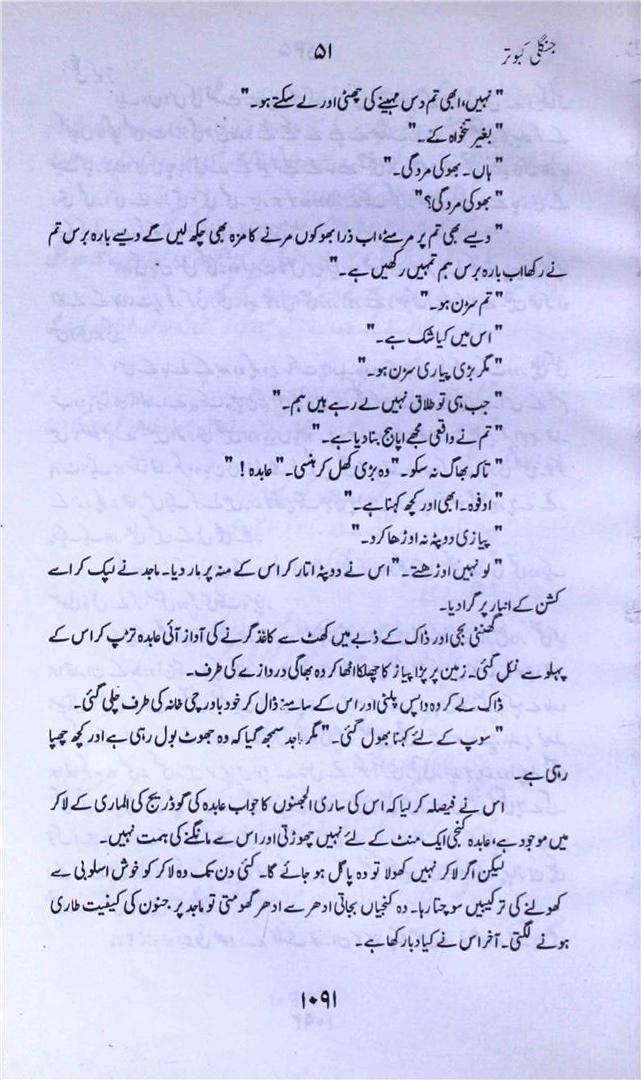 جنگلی کبوتر
۵۱
" نہیں، ابھی تم دس مہینے کی چھٹی اور لے سکتے ہو۔ "
" بغیر تنخواہ کے۔ "
" ہاں۔ بھوکی مرو گی۔ "
" بھوکی مرو گی؟ "
" ویسے بھی تم پر مر مٹے، اب ذرا بھوکوں مرنے کا مزہ بھی چکھ لیں گے ویسے بارہ برس تم
نے رکھا اب بارہ برس ہم تمہیں رکھیں ہے۔ "
" تم سڑن ہو۔ "
" اس میں کیا شک ہے۔ "
" مگر بڑی پیاری سڑن ہو۔ "
" جب ہی تو طلاق نہیں لے رہے ہیں ہم۔ "
" تم نے واقعی مجھے اپاہج بنا دیا ہے۔ "
" تاکہ بھاگ نہ سکو۔ " وہ بڑی کھل کر ہنسی۔ " عابدہ ! "
" اوفوہ۔ ابھی اور کچھ کہنا ہے۔ "
" پیازی دوپٹہ نہ اوڑھا کرو۔ "
" لو نہیں اوڑھتے۔ " اس نے دوپٹہ اتار کر اس کے منہ پر مار دیا۔ ماجد نے لپک کر اسے
کشن کے انبار پر گرا دیا۔
گھنٹی بجی اور ڈاک کے ڈبے میں کھٹ سے کاغذ گرنے کی آواز آئی عابدہ تڑپ کر اس کے
پہلو سے نکل گئی۔ زمین پر پڑا پیاز کا چھلکا اٹھا کر وہ بھاگی دروازے کی طرف۔
ڈاک لے کر وہ واپس پلٹی اور اس کے سامنے ڈال کر خود باورچی خانہ کی طرف چلی گئی۔
" سوپ کے لئے کہنا بھول گئی۔ " مگر ماجد سمجھ گیا کہ وہ جھوٹ بول رہی ہے اور کچھ چھپا
رہی ہے۔
اس نے فیصلہ کر لیا کہ اس کی ساری الجھنوں کا جواب عابدہ کی گوڈریج کی الماری کے لاکر
میں موجود ہے، عابدہ کنجی ایک منٹ کے لئے نہیں چھوڑتی اور اس سے مانگنے کی ہمت نہیں۔
لیکن اگر لاکر نہیں کھولا تو وہ پاگل ہو جائے گا۔ کئی دن تک وہ لاکر کو خوش اسلوبی سے
کھولنے کی ترکیبیں سوچتا رہا۔ وہ کنجیاں بجاتی ادھر سے ادھر گھومتی تو ماجد پر جنون کی کیفیت طاری
ہونے لگتی۔ آخر اس نے کیا دبا رکھا ہے۔
۱۰۹۱